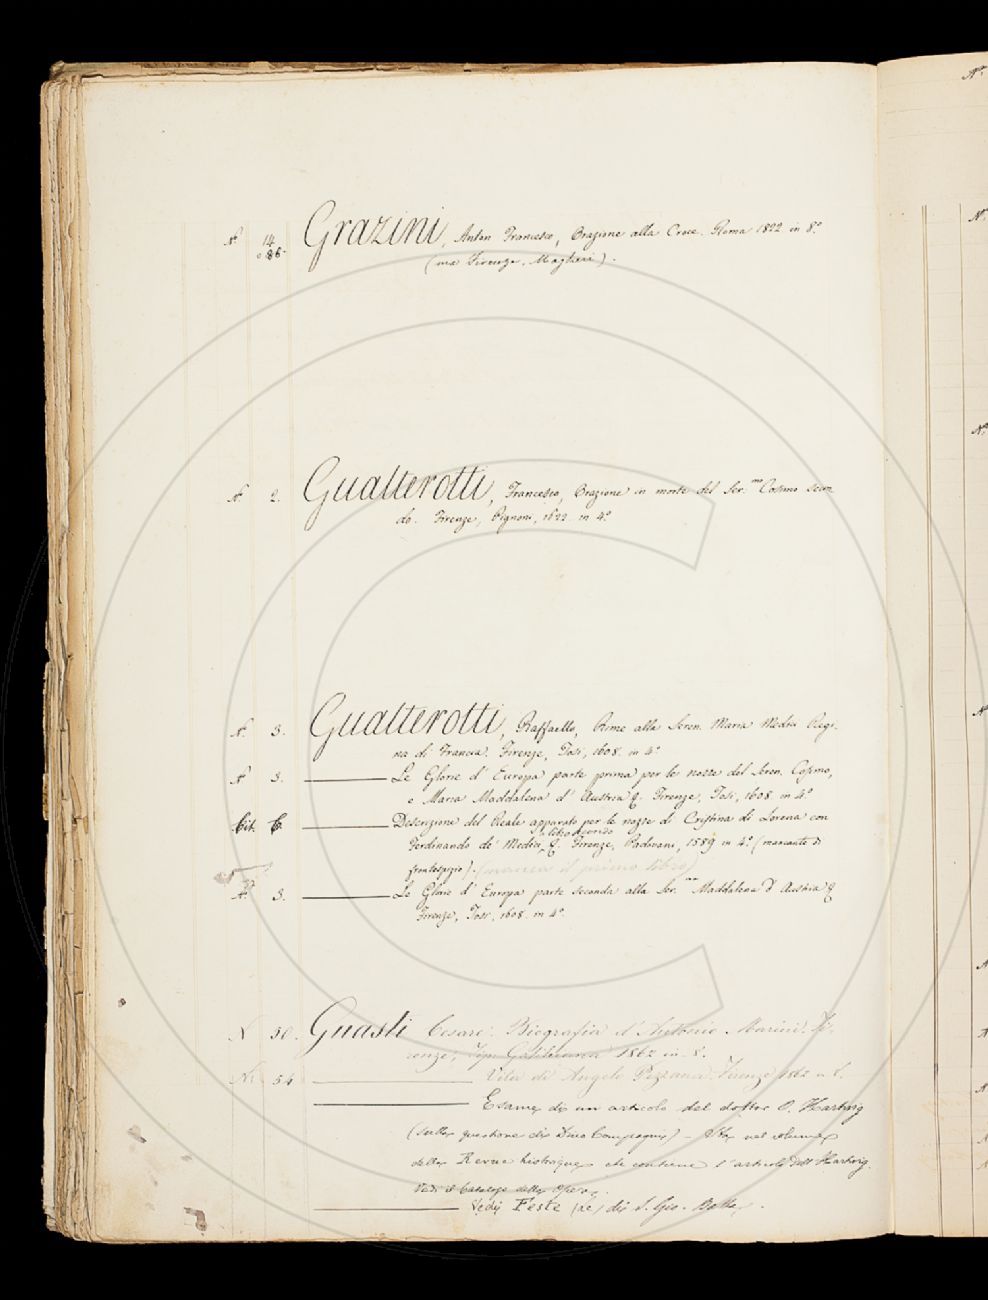 N.º 14 Grazini, Anton Francesco, Orazione alla Croce. Roma 1822 in 8.º
o 86. (ma Firenze, Magheri).
N. 2. Gualterotti, Francesco, Orazione in morte del Ser.mo Cosimo secon
do. Firenze, Pignoni, 1622. in 4.º
N. 3. Gualterotti, Raffaello, Rime alla Seren. Maria Medici Regi-
na di Francia. Firenze, Tosi, 1608. in 4.º
N. 3. Le Glorie d'Europa parte prima per le nozze del Seren. Cosimo,
e Maria Maddalena d'Austria &. Firenze, Tosi, 1608. in 4.º
Cit. C. Descrizione del Reale apparato per le nozze di Cristina di Lorena con
libro secondo
Ferdinando de' Medici &. Firenze, Padovani, 1589 in 4.º (mancante di
frontespizio). (manca il primo libro)
N. 3. Le Glorie d'Europa parte seconda alla Ser.ma Maddalena d'Austria &
Firenze, Tosi, 1608. in 4.º
N. 50. Guasti Cesare. Biografia d'Antonio Marini. Fi-
renze, Tip. Galileiana 1862 in 8.
N. 54 Vita di Angelo Pezzana. Firenze 1862 in 8.
Esame di un articolo del dottor O. Hartwig
(sulla questione di Dino Compagni) - Sta nel volume
della Revue historique che contiene l'articolo dell'Hartwig.
Vedi il Catalogo della Opera.
Vedi Feste (le) di S. Gio. Batta.
N.º
N.º
N.º
N.º